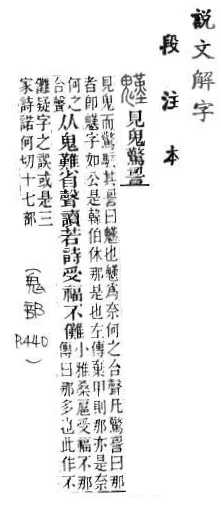 説文解字
段注本
𩴓 見鬼驚䛐
見鬼而驚駭其䛐曰𩴓也𩴓爲奈何之合聲凡驚䛐曰那
者卽𩴓字如公是韓伯休那是也左傳棄甲則那亦是奈
何之合聲
从鬼難省聲讀若詩受福不儺
小雅桑扈受福不那
傳曰那多也此作不
儺疑字之誤或是三
家詩諾何切十七部
(鬼部 P.440)